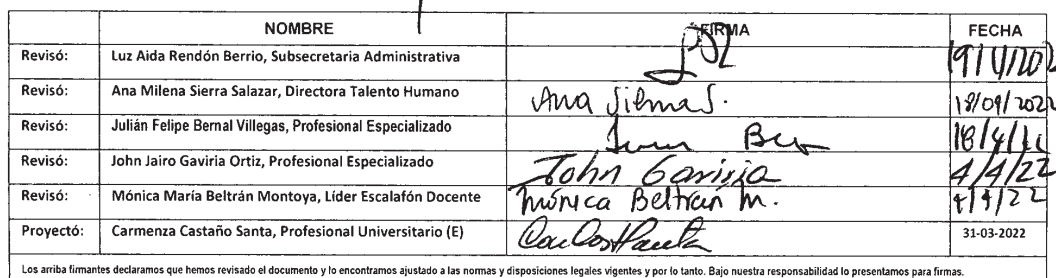 NOMBRE FIRMA FECHA
Revisó: Luz Aida Rendón Berrio, Subsecretaria Administrativa
Revisó: Ana Milena Sierra Salazar, Directora Talento Humano Ana Silena S. 18/04/2022
Revisó: Julián Felipe Bernal Villegas, Profesional Especializado
Revisó: John Jairo Gaviria Ortiz, Profesional Especializado John Gaviria 4/4/22
Revisó: Mónica María Beltrán Montoya, Líder Escalafón Docente Mónica Beltrán M. 4/4/22
Proyectó: Carmenza Castaño Santa, Profesional Universitario (E) 31-03-2022
Los arriba firmantes declaramos que hemos revisado el documento y lo encontramos ajustado a las normas y disposiciones legales vigentes y por lo tanto. Bajo nuestra responsabilidad lo presentamos para firmas.